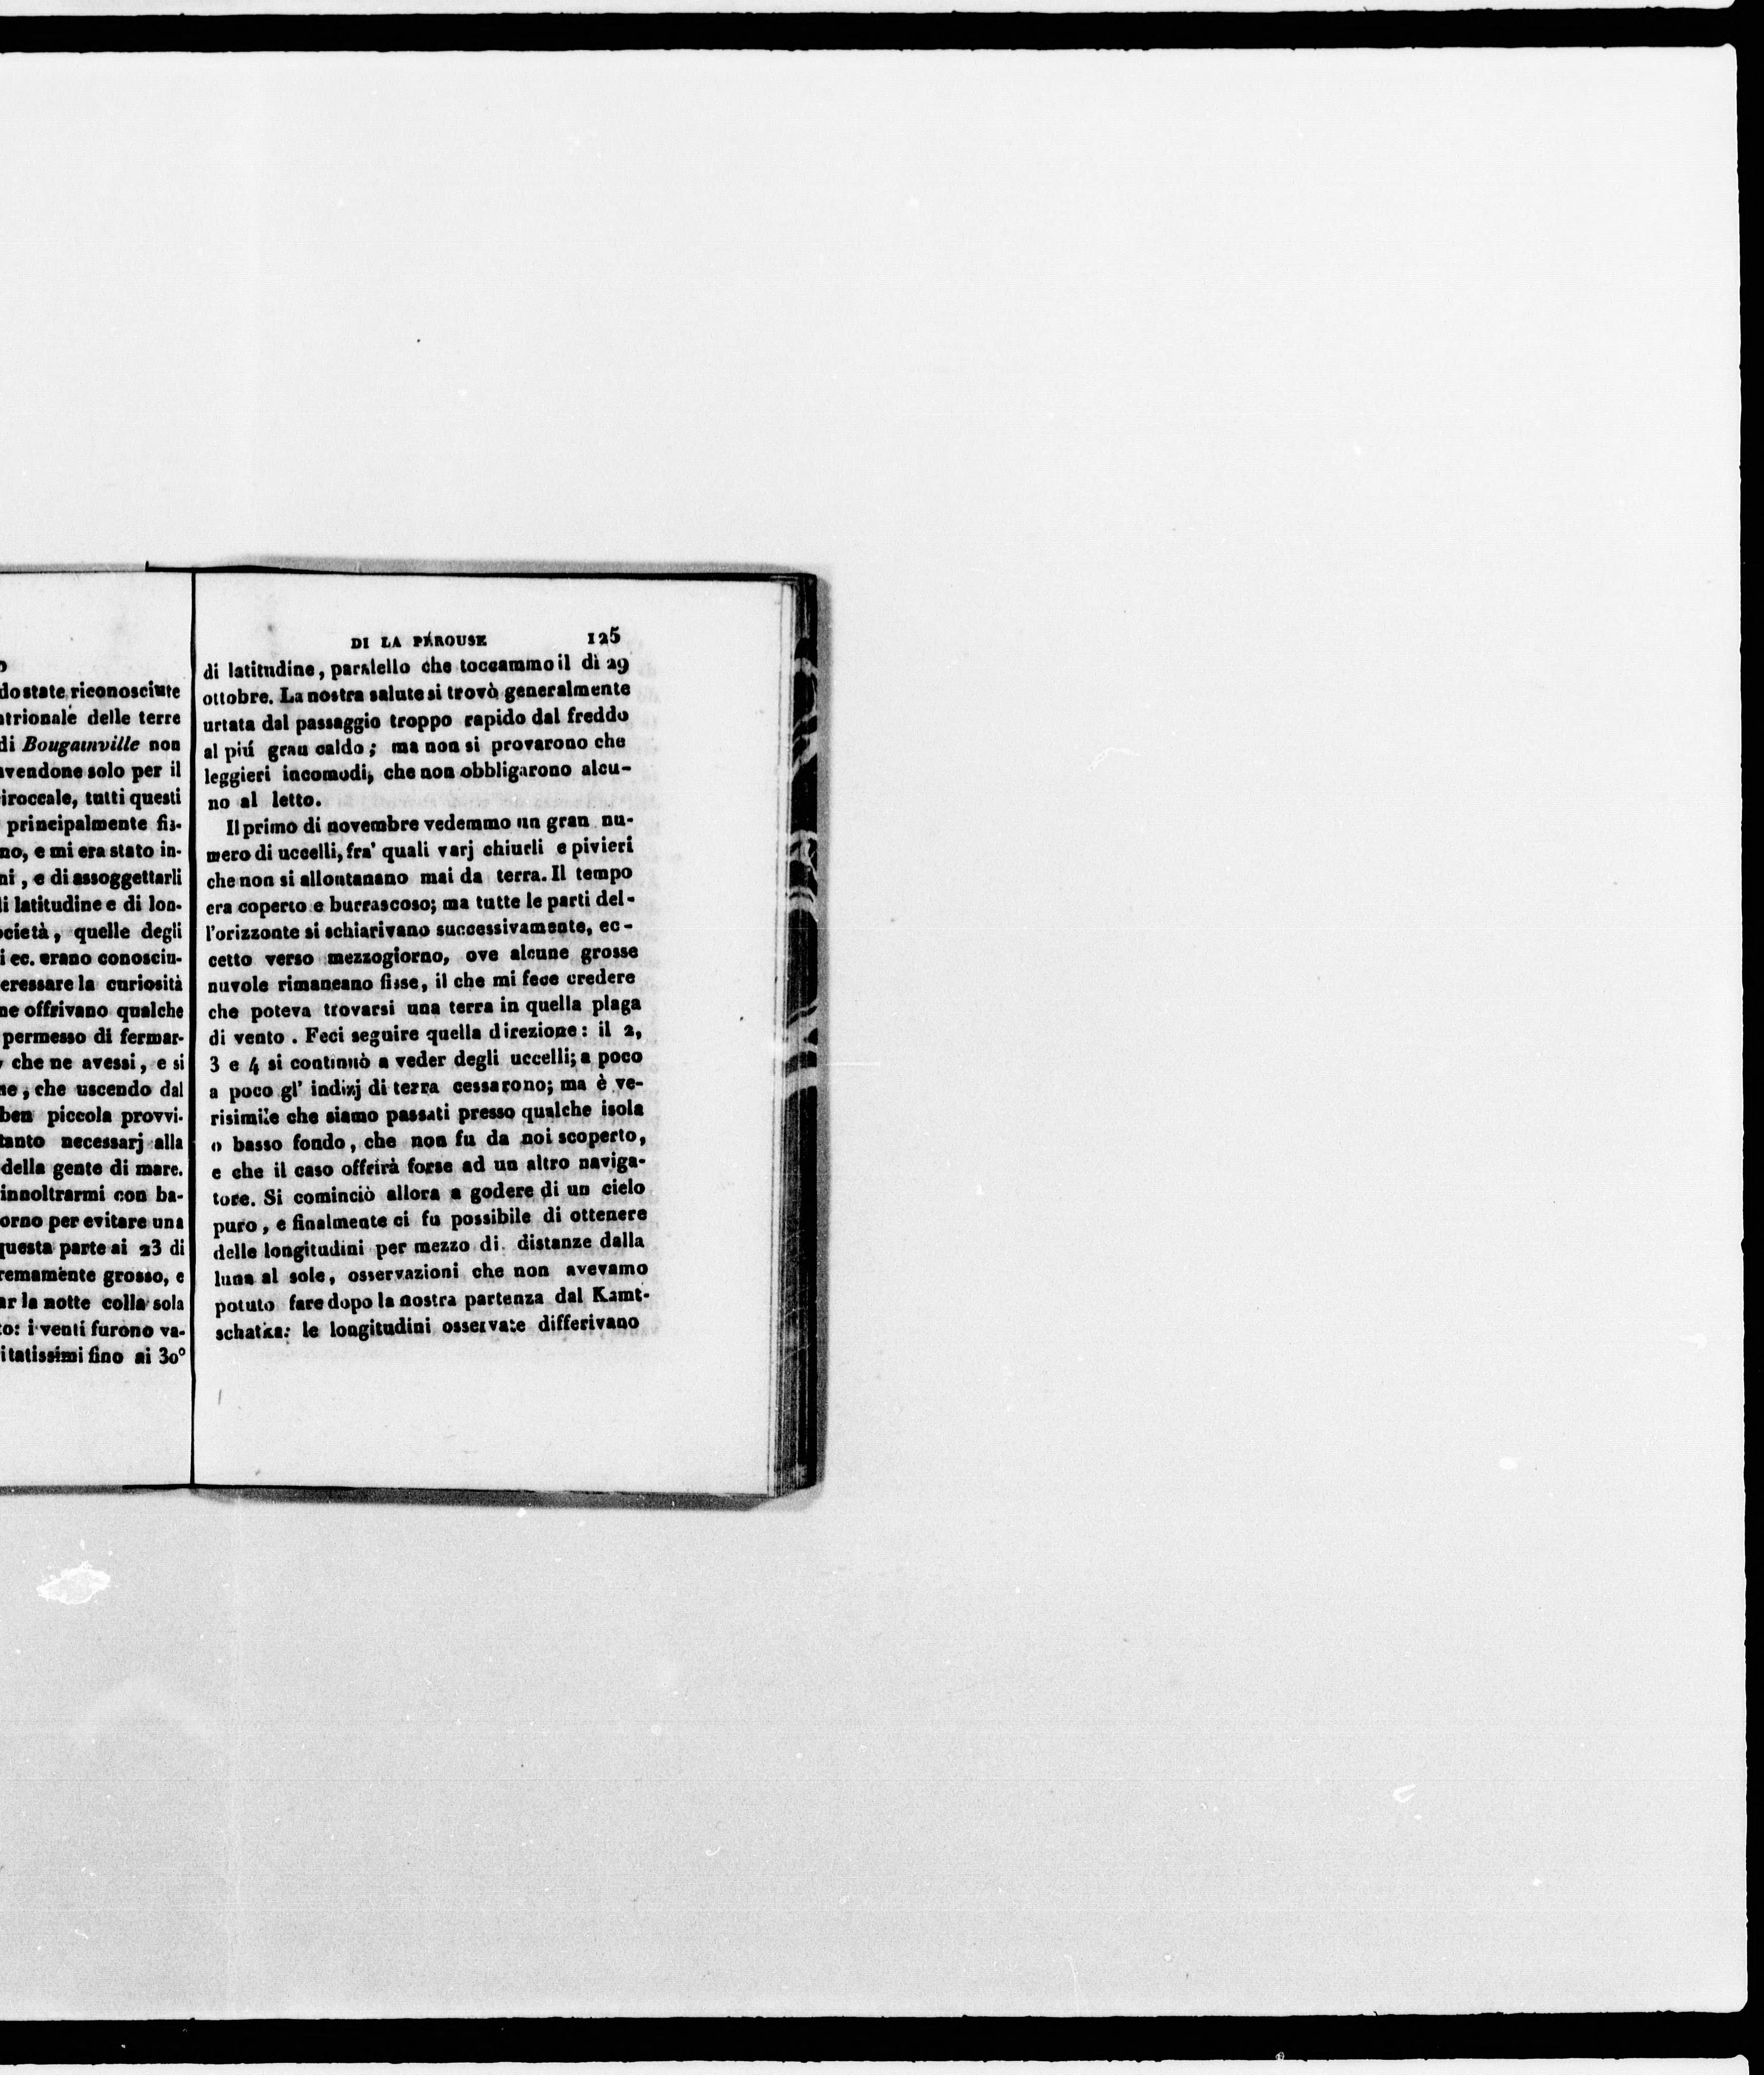 do state riconosciute
trionale delle terre
di Bougainville non
vendone solo per il
iroccale, tutti questi
principalmente fis-
no, e mi era stato in-
ni, e di assoggettarli
li latitudine e di lon-
cietà, quelle degli
i ec. erano conosciu-
eressare la curiosità
ne offrivano qualche
permesso di fermar-
che ne avessi, e si
ne, che uscendo dal
ben piccola provvi-
tanto necessarj alla
della gente di mare.
innoltrarmi con ba-
orno per evitare una
questa parte ai 23 di
remamente grosso, e
ar la notte colla sola
to: i venti furono va-
itatissimi fino ai 30°
DI LA PÉROUSE 125
di latitudine, paralello che toccammo il dì 29
ottobre. La nostra salute si trovò generalmente
urtata dal passaggio troppo rapido dal freddo
al piú gran caldo; ma non si provarono che
leggieri incomodi, che non obbligarono alcu-
no al letto.
Il primo di novembre vedemmo un gran nu-
mero di uccelli, fra' quali varj chiurli e pivieri
che non si allontanano mai da terra. Il tempo
era coperto e burrascoso; ma tutte le parti del-
l'orizzonte si schiarivano successivamente, ec-
cetto verso mezzogiorno, ove alcune grosse
nuvole rimaneano fisse, il che mi fece credere
che poteva trovarsi una terra in quella plaga
di vento. Feci seguire quella direzione: il 2,
3 e 4 si continuò a veder degli uccelli; a poco
a poco gl' indizj di terra cessarono; ma è ve-
risimile che siamo passati presso qualche isola
o basso fondo, che non fu da noi scoperto,
e che il caso offrirà forse ad un altro naviga-
tore. Si cominciò allora a godere di un cielo
puro, e finalmente ci fu possibile di ottenere
delle longitudini per mezzo di distanze dalla
luna al sole, osservazioni che non avevamo
potuto fare dopo la nostra partenza dal Kamt-
schatka: le longitudini osservate differivano